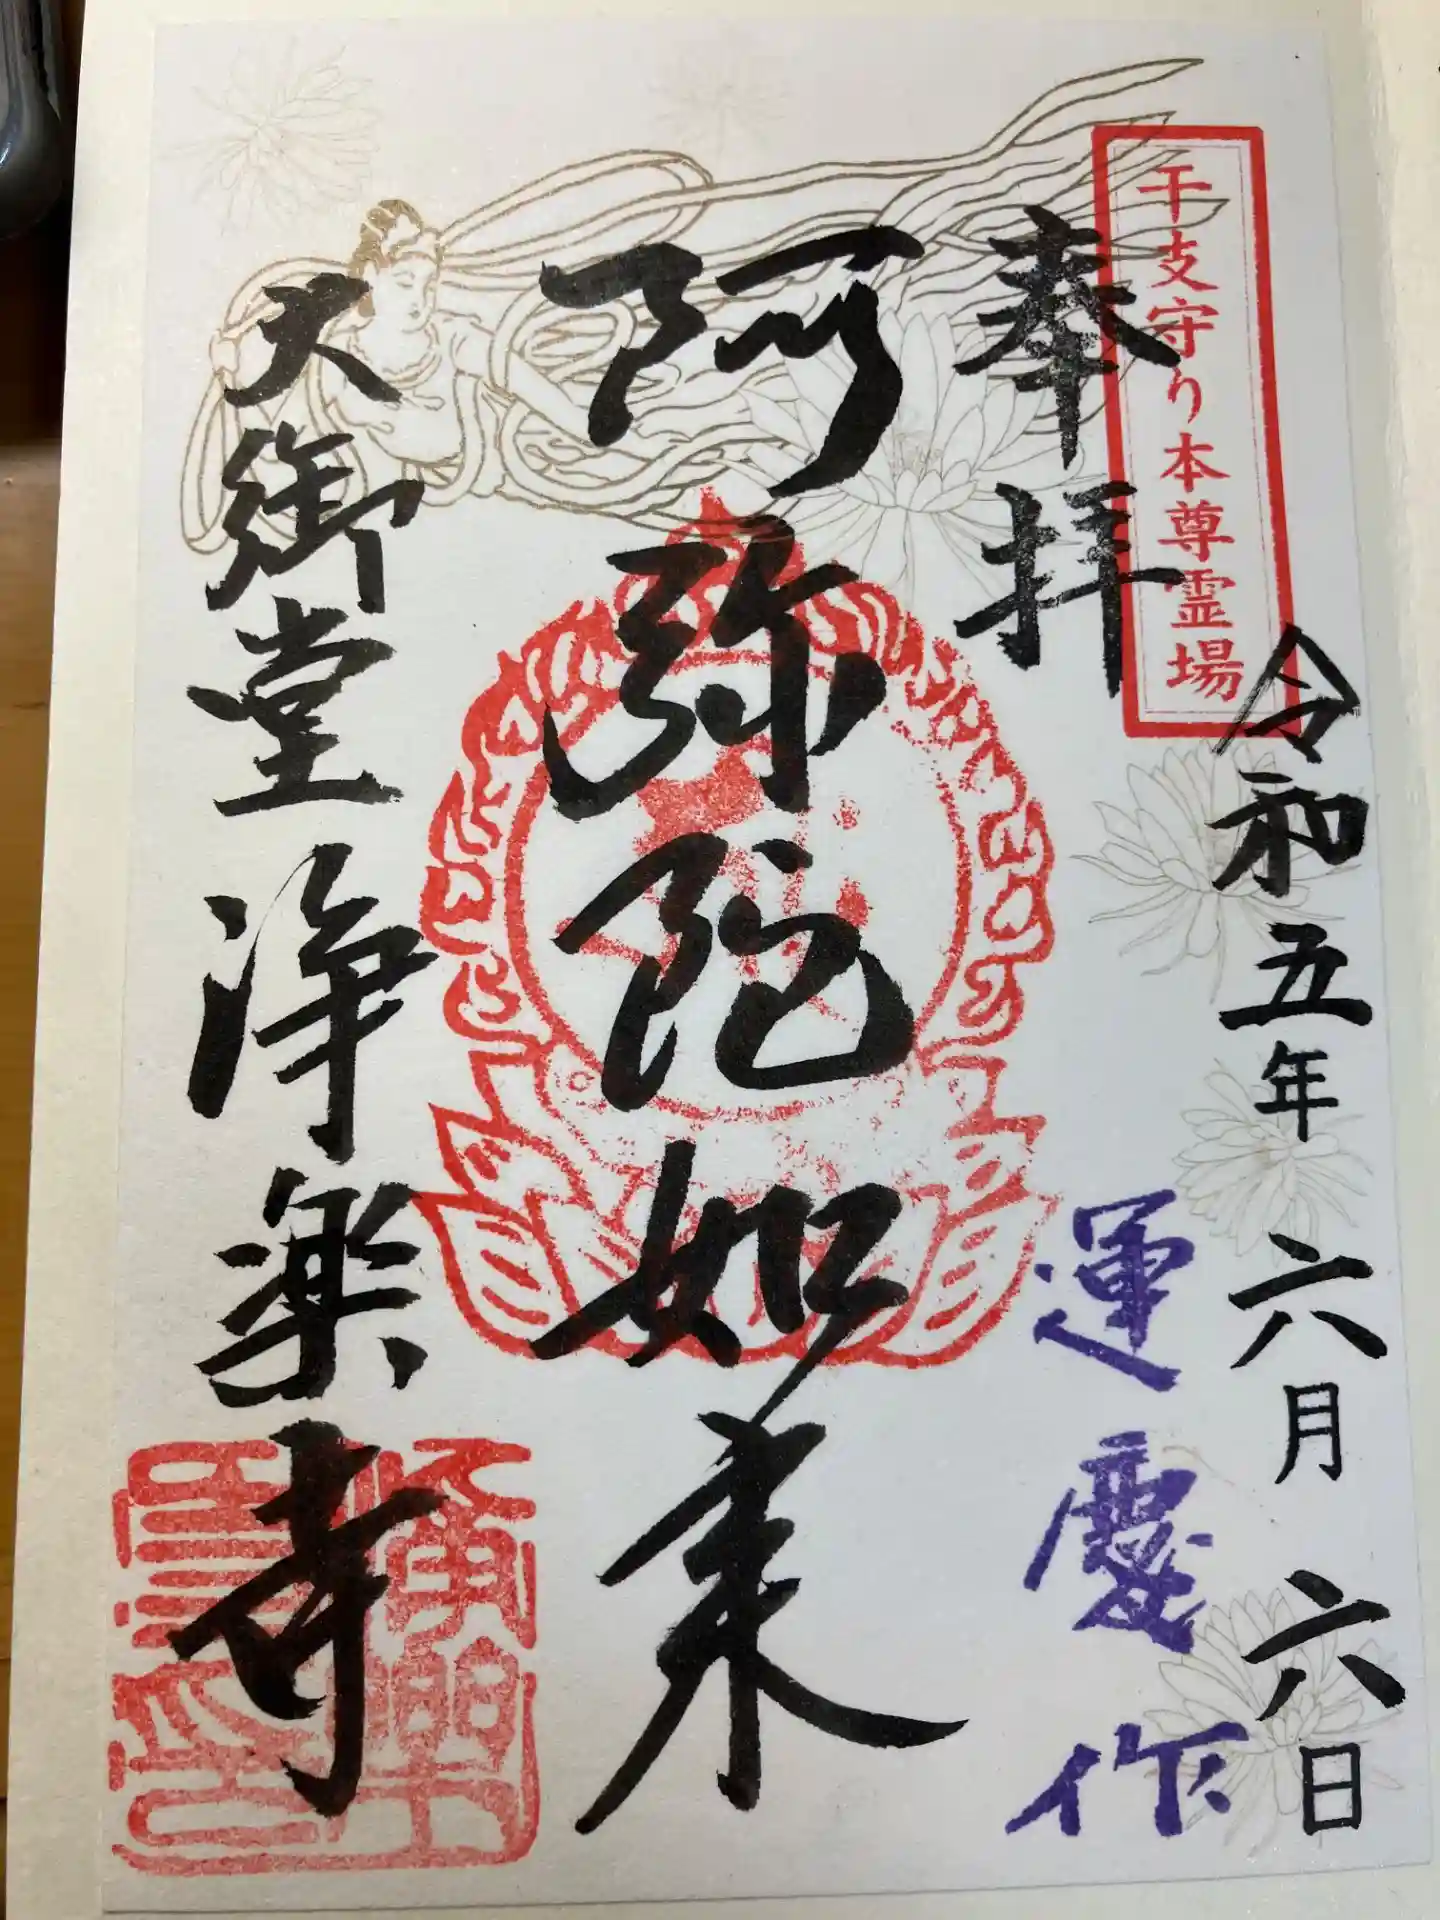 令和五年六月六日
干支守り本尊霊場
奉拝
運慶作
阿弥陀如来
大御堂浄楽寺